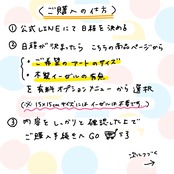 〈ご購入の仕方〉
① 公式LINEにて日程を決める
② 日程が決まったら こちらの商品ページから
・ご希望のアートのサイズ
・木製イーゼルの有無
を有料オプションメニューから選択
(※15×15cmサイズにはイーゼルは不要です)
③ 内容をしっかりと確認した上で
ご購入手続きへGO